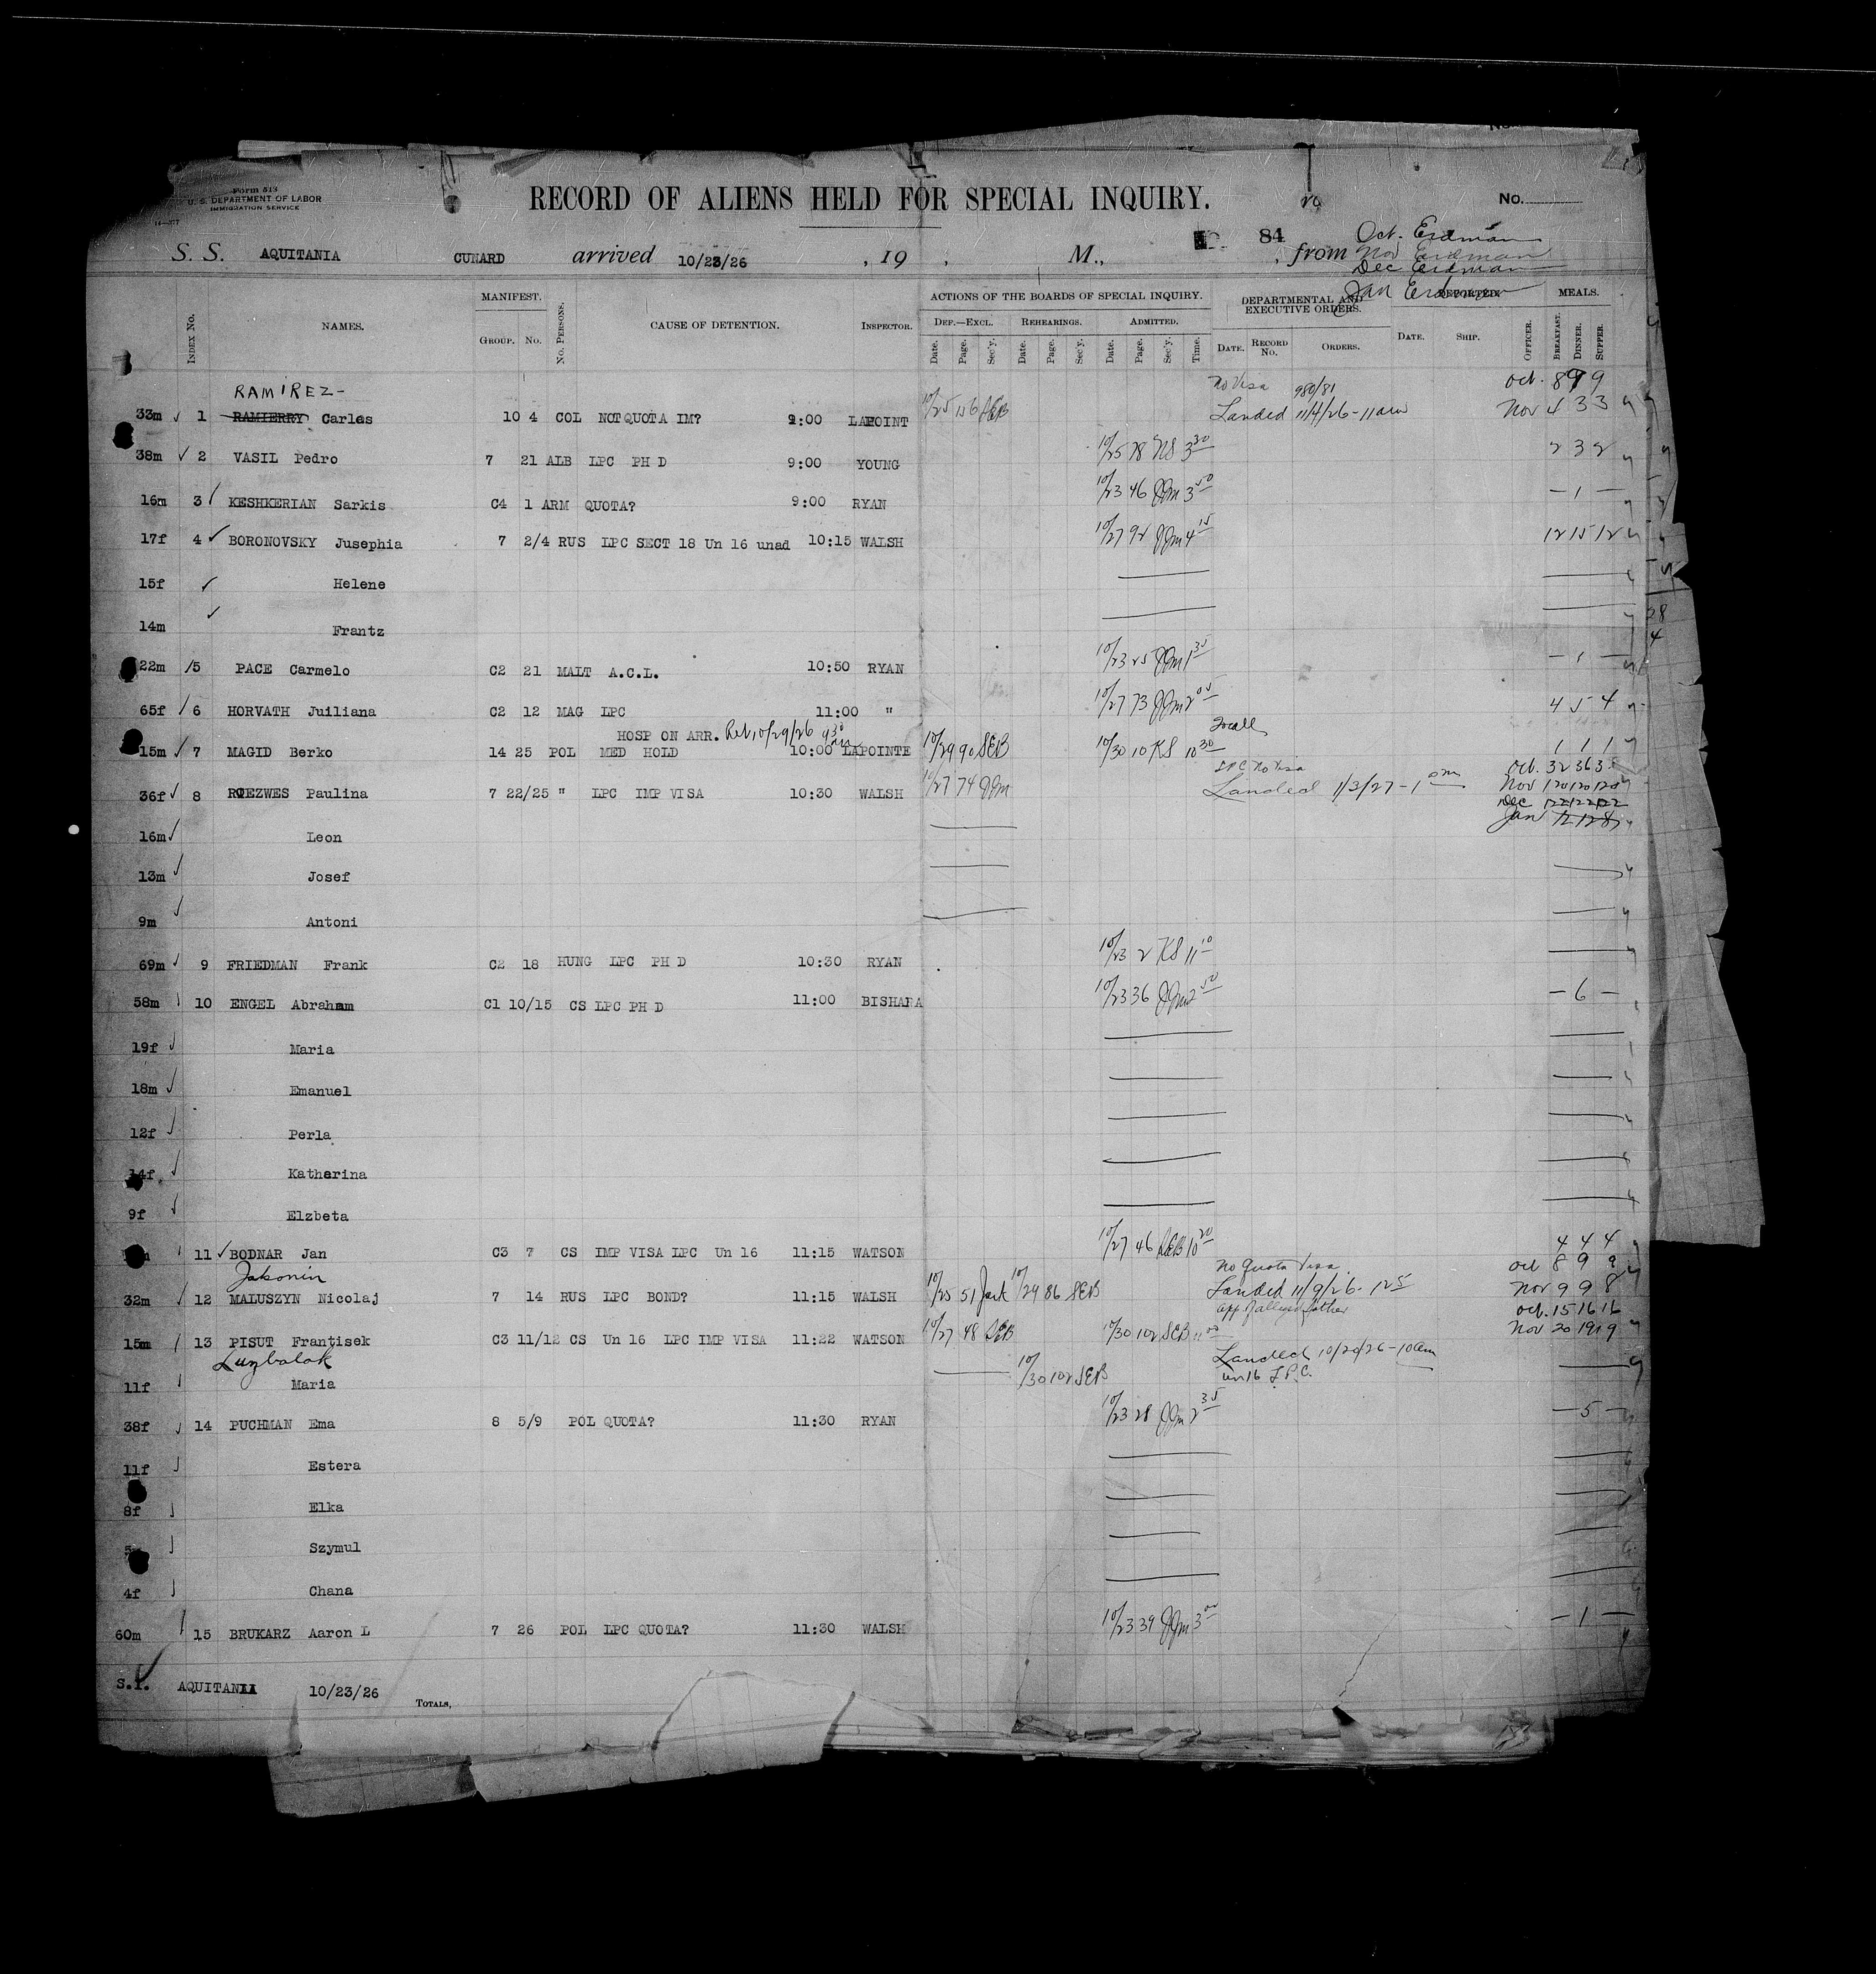 Form 513
U. S. DEPARTMENT OF LABOR
IMMIGRATION SERVICE
RECORD OF ALIENS HELD FOR SPECIAL INQUIRY.
No.
S. S. AQUITANIA CUNARD arrived 10/23/26 , 19 , M., 84 , from
Oct. Erdman
Nov Erdman
Dec Erdman
Jan Erdman
INDEX No. NAMES. MANIFEST. GROUP. No. No. PERSONS. CAUSE OF DETENTION. INSPECTOR. ACTIONS OF THE BOARDS OF SPECIAL INQUIRY. DEPARTMENTAL AND EXECUTIVE ORDERS. DEPORTED. MEALS.
DEF.—EXCL. REHEARINGS. ADMITTED.
Date. Page. Sec'y. Date. Page. Sec'y. Date. Page. Sec'y. Time. DATE. RECORD No. ORDERS. DATE. SHIP. OFFICER. BREAKFAST. DINNER. SUPPER.
RAMIREZ- No Visa 980/81 Oct. 8 9 9
33m 1 RAMIERRY Carlos 10 4 COL NOT QUOTA IM? 9:00 LAPOINT 10/25 156 SEB Landed 11/4/26-11am Nov 4 3 3
38m 2 VASIL Pedro 7 21 ALB LPC PH D 9:00 YOUNG 10/25 78 NS 3 30 2 3 2
16m 3 KESHKERIAN Sarkis C4 1 ARM QUOTA? 9:00 RYAN 10/23 46 JJM 3 50 — 1 —
17f 4 BORONOVSKY Jusephia 7 2/4 RUS LPC SECT 18 Un 16 unad 10:15 WALSH 10/27 92 JJM 4 15 12 15 12
15f Helene
14m Frantz
22m 5 PACE Carmelo C2 21 MALT A.C.L. 10:50 RYAN 10/23 25 JJM 1 35 — 1 —
65f 6 HORVATH Juiliana C2 12 MAG LPC 11:00 " 10/27 73 JJM 2 05 4 5 4
HOSP ON ARR. Ret 10/29/26 9 30 am
15m 7 MAGID Berko 14 25 POL MED HOLD 10:00 LAPOINTE 10/29 90 SEB 10/30 10 KS 10 30 1 1 1
LPC No Visa Oct. 32 36 3
36f 8 ROEZWES Paulina 7 22/25 " LPC IMP VISA 10:30 WALSH 10/27 74 JJM Landed 1/3/27-1 pm Nov 120 120 120
Dec 122 122 122
Jan 12 12 8
16m Leon
13m Josef
9m Antoni
69m 9 FRIEDMAN Frank C2 18 HUNG LPC PH D 10:30 RYAN 10/23 2 KS 11 10
58m 10 ENGEL Abraham C1 10/15 CS LPC PH D 11:00 BISHARA 10/23 36 JJM 2 50 — 6 —
19f Maria
18m Emanuel
12f Perla
14f Katherina
9f Elzbeta
11 BODNAR Jan C3 7 CS IMP VISA LPC Un 16 11:15 WATSON 10/27 46 SEB 10 20 4 4 4
Jakonin No Quota Visa. Oct 8 9 9
32m 12 MALUSZYN Nicolaj 7 14 RUS LPC BOND? 11:15 WALSH 10/25 51 10/29 86 SEB Landed 11/9/26- 1 25 Nov 9 9 8
app. of alleged father Oct. 15 16 16
15m 13 PISUT Frantisek C3 11/12 CS Un 16 LPC IMP VISA 11:22 WATSON 10/27 48 SEB 10/30 102 SEB 11 00 Nov 20 19 19
Landed 10/20/26-10am
11f Maria 10/30 102 SEB un 16 L.P.C.
38f 14 PUCHMAN Ema 8 5/9 POL QUOTA? 11:30 RYAN 10/23 28 JJM 2 35 — 5 —
11f Estera
8f Elka
Szymul
4f Chana
60m 15 BRUKARZ Aaron L 7 26 POL LPC QUOTA? 11:30 WALSH 10/23 39 JJM 3 00 — 1 —
S.I. AQUITANIA 10/23/26 TOTALS,
183